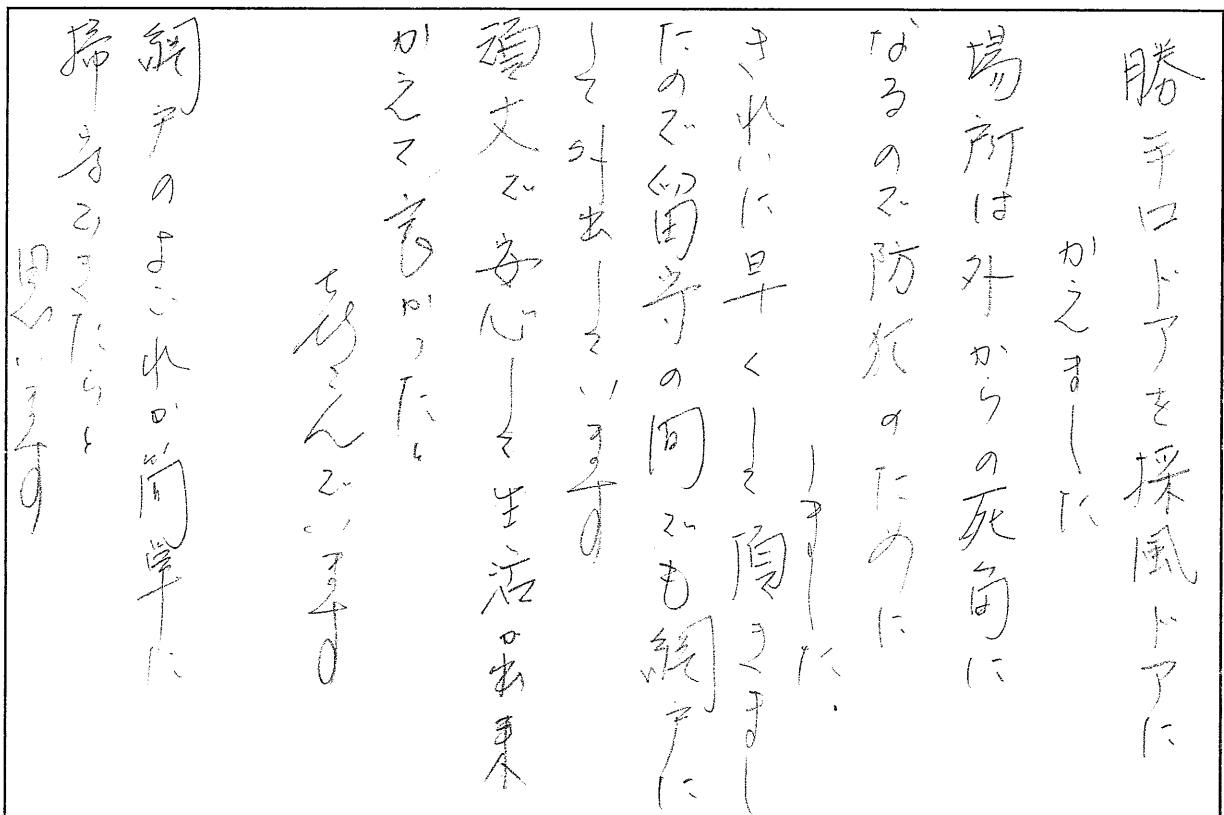 勝手口ドアを採風ドアに
かえました
場所は外からの死角に
なるので防犯のために
しました.
きれいに早くして頂きまし
たので留守の間でも網戸に
して外出しています
頑丈で安心して生活が出来
かえて良かったと
喜こんでいます
網戸のよごれが簡単に
掃き出きたらと
思います